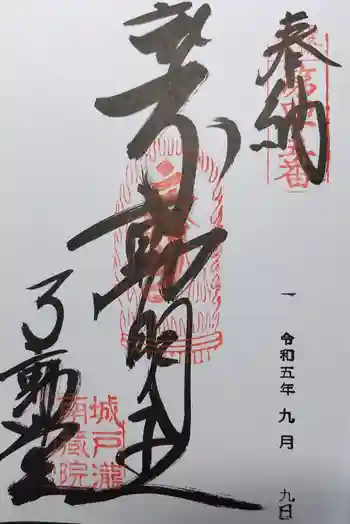 奉納
第四十五番
不動明王
不動堂
城戸瀧
南蔵院
令和五年 九月 九日